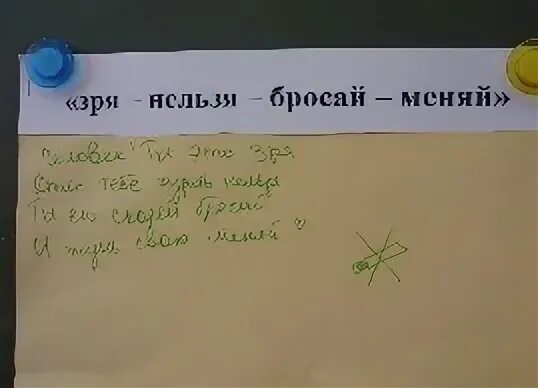 «зря - нельзя – бросай – меняй»
Человек! Ты это зря
тебе курить нельзя
Ты её скорей бросай
И жизнь свою меняй